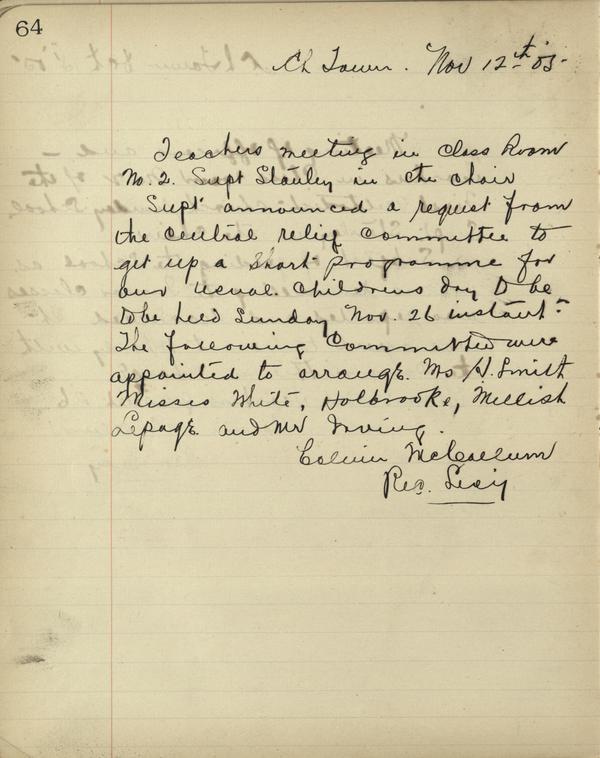 64
Ch Town. Nov 12th 05-
Teachers meeting in Class Room
No. 2. Supt Stanley in the chair
Supt announced a request from
the central relief committee to
get up a short programme for
our usual childrens day to be
to be held Sunday Nov. 26 instant-
The following Committed were
appointed to arrange. Ms H. Smith
Misses White, Holbrooke, Mellish
Lepage and Mr Irving.
Calvin McCallum
Rec. Secy